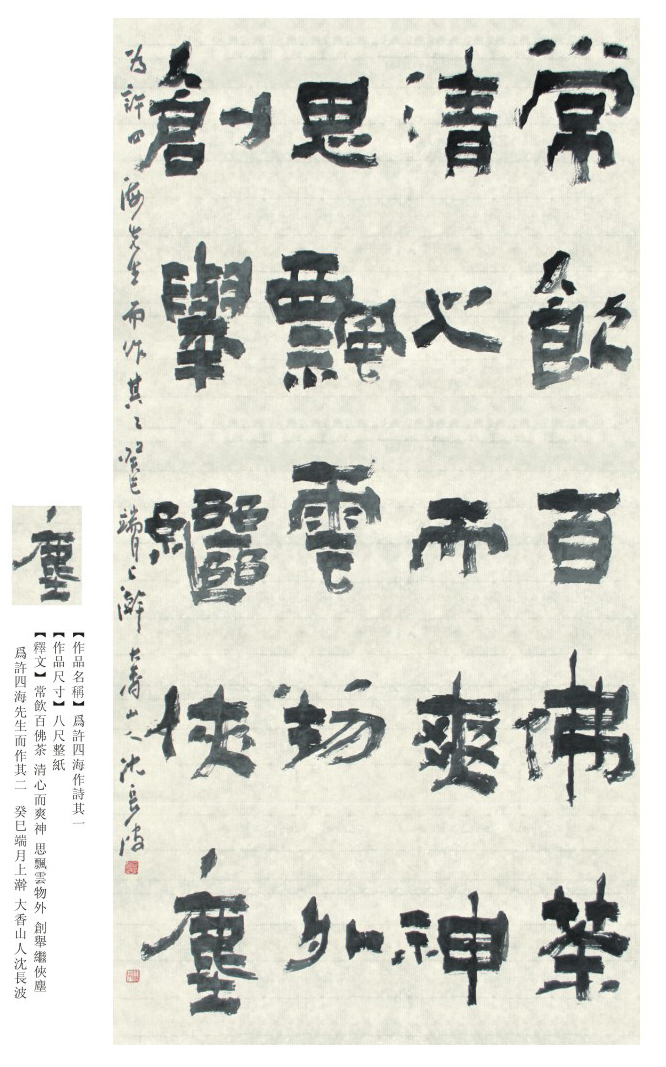 常飲百佛茶
清心而爽神
思飄雲物外
創舉繼俠塵
為許四海先生而作其二 癸巳端月上澣 大香山人沈長波
塵
【作品名稱】爲許四海作詩其一
【作品尺寸】八尺整紙
【釋文】常飲百佛茶 清心而爽神 思飄雲物外 創舉繼俠塵
爲許四海先生而作其二 癸巳端月上澣 大香山人沈長波